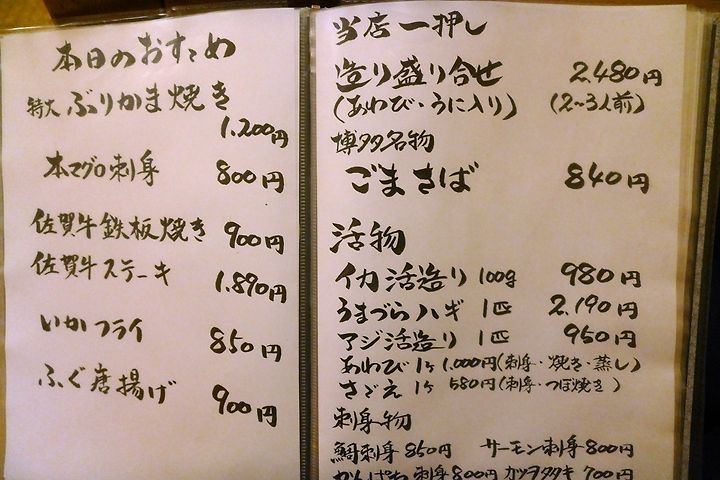 本日のおすゝめ
特大 ぶりかま焼き
1.200円
本マグロ刺身 800円
佐賀牛鉄板焼き 900円
佐賀牛ステーキ 1.890円
いかフライ 850円
ふぐ唐揚げ 900円
当店一押し
造り盛り合せ 2.480円
(あわび・うに入り) (2〜3人前)
博多名物
ごまさば 840円
活物
イカ活造り 100g 980円
うまづらハギ 1匹 2.190円
アジ活造り 1匹 950円
あわび 1ヶ 1.000円(刺身・焼き・蒸し)
さざえ 1ヶ 580円(刺身・つぼ焼き)
刺身物
鯛刺身 850円 サーモン刺身 800円
かんぱち刺身 800円 カツヲタタキ 700円